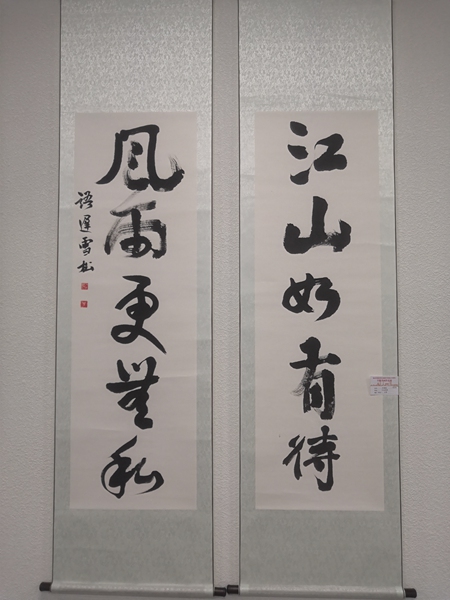 江山如有待
风雨更無私
遲雪松